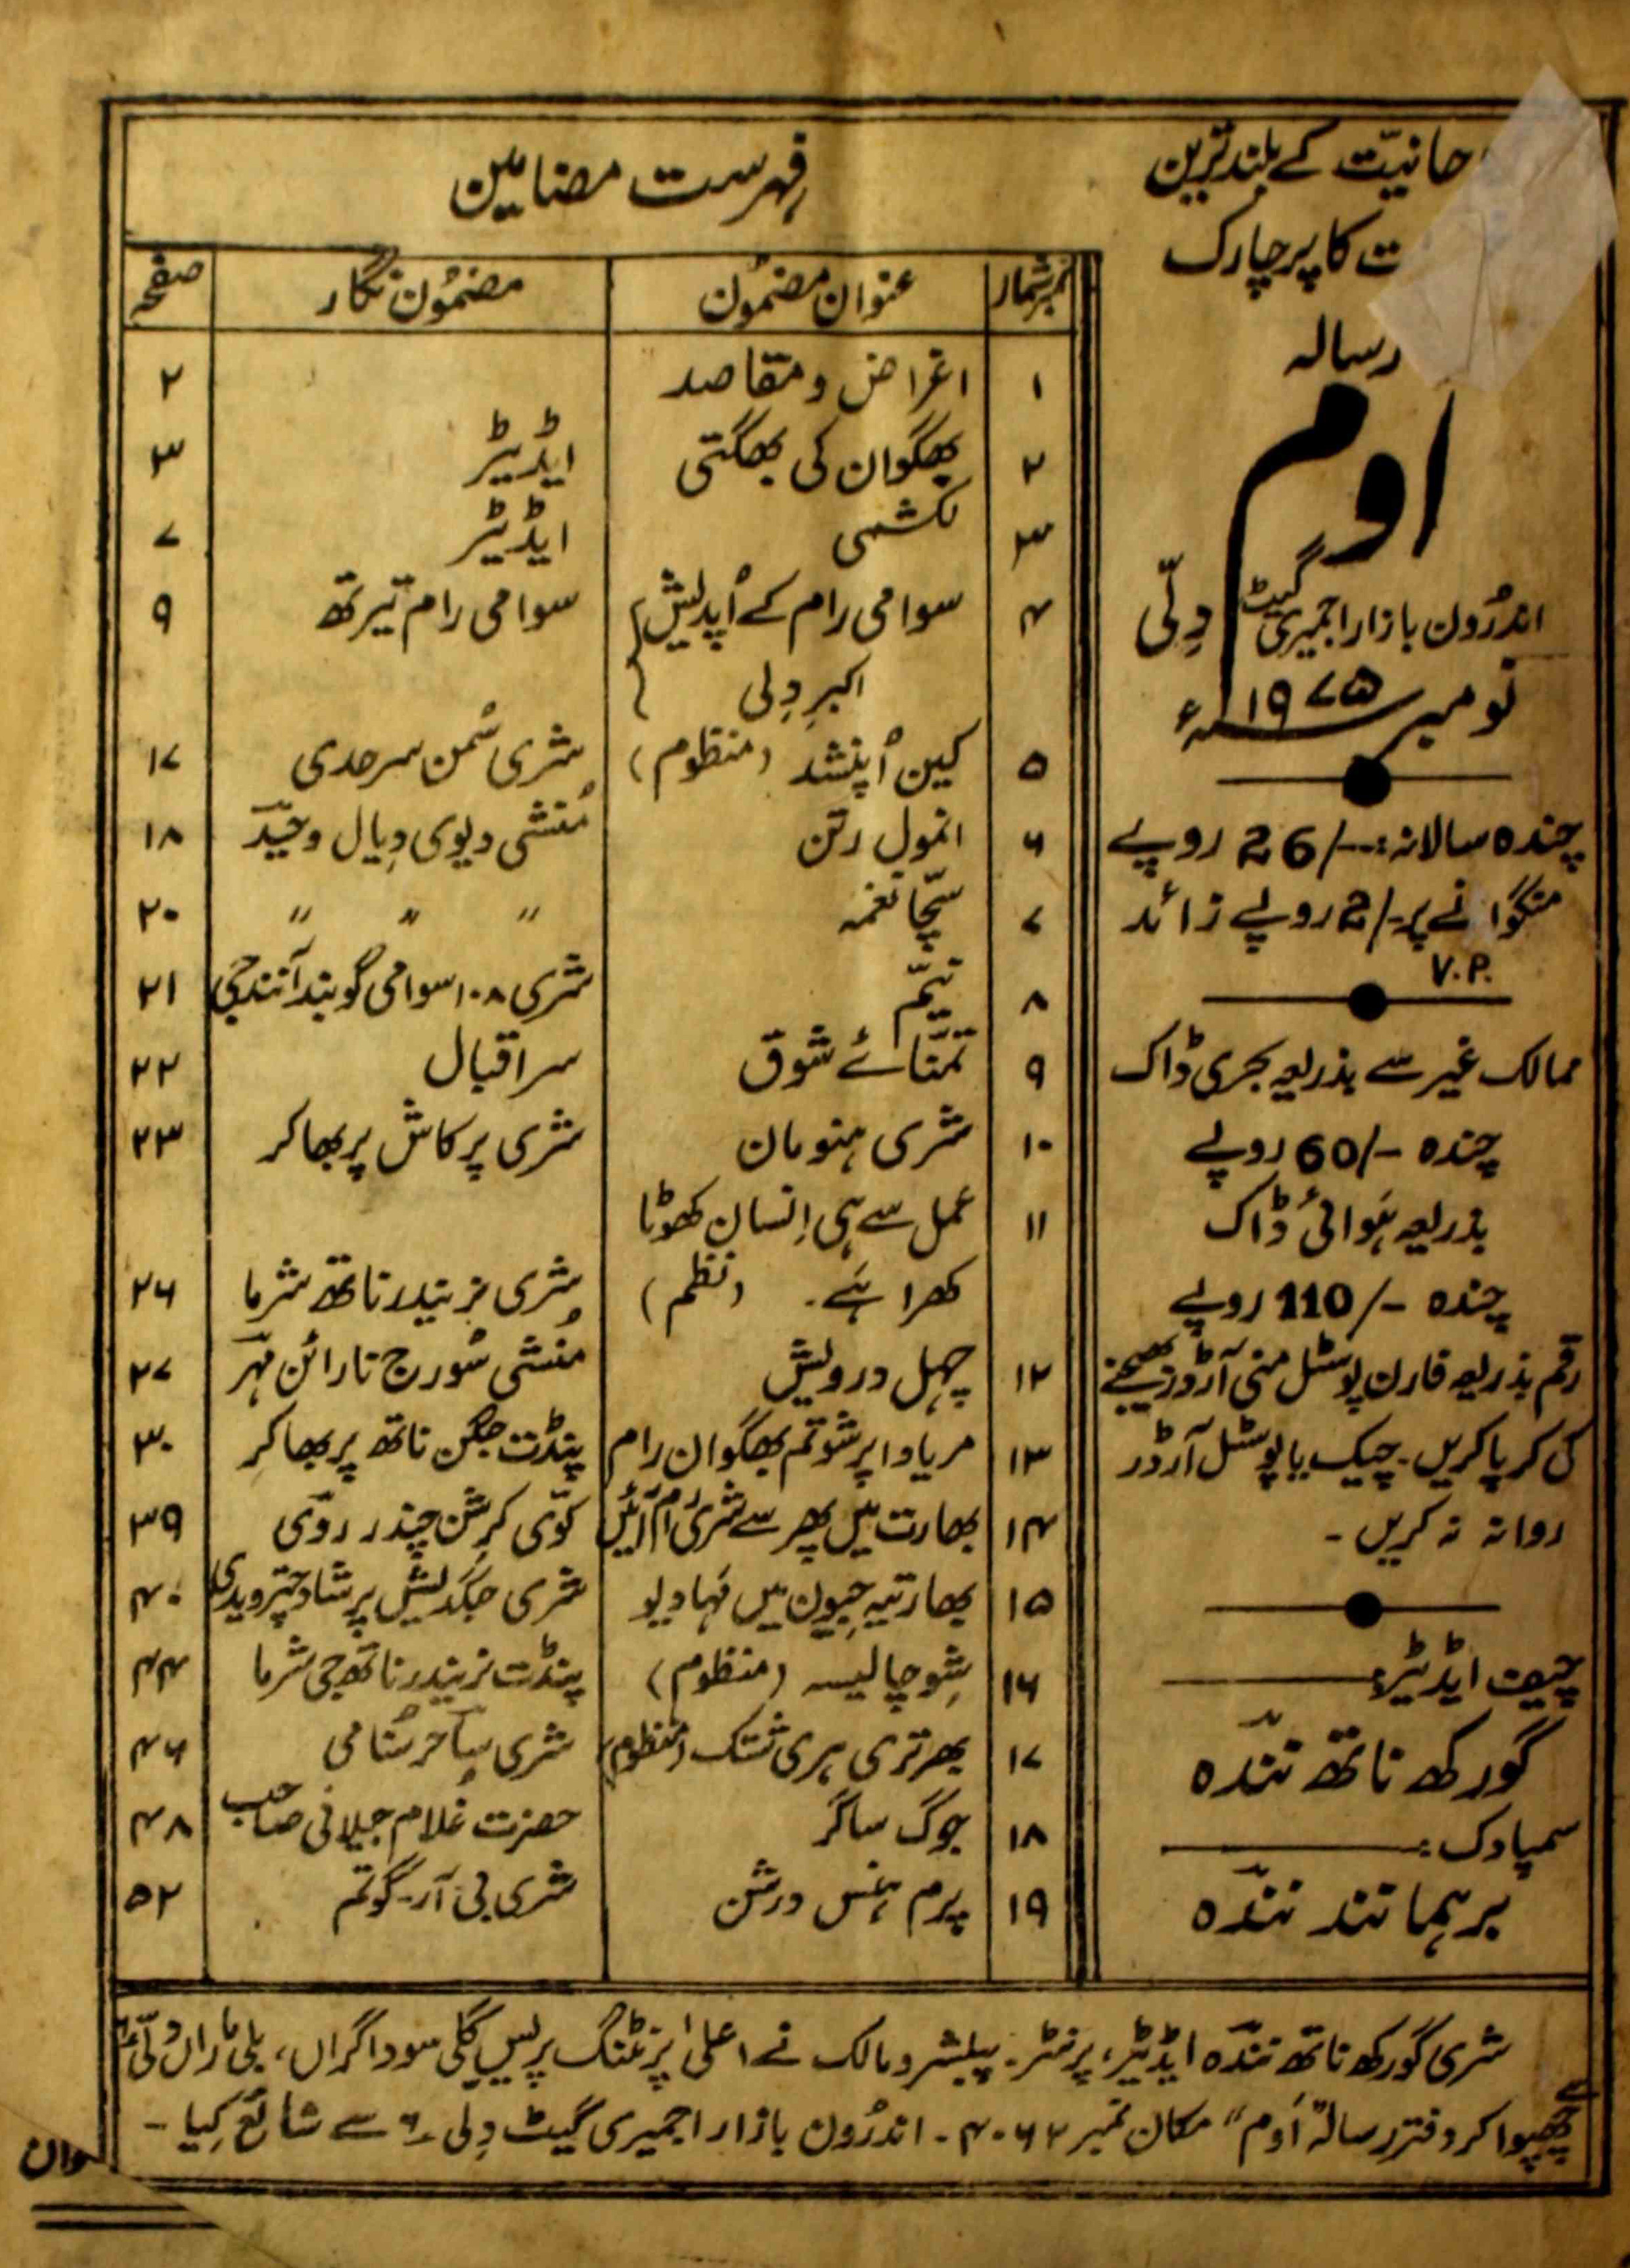 حانیّت کے بلند ترین
ت کا پرچارک
رسالہ
اوم
اندرُون بازار اجمیری گیٹ دِلّی
نومبر ۱۹۷۵ء
چندہ سالانہ:-/26 روپے
منگوانے پر -/2 روپے زائد
V.P.
ممالک غیر سے بذریعہ بحری ڈاک
چندہ -/60 روپے
بذریعہ ہَوائی ڈاک
چندہ -/110 روپے
رقم بذریعہ فارن پوسٹل منی آرڈر بھیجنے
کی کرپا کریں۔ چیک یا پوسٹل آرڈر
روانہ نہ کریں۔
چیف ایڈیٹر:
گورکھ ناتھ نندّہ
سمپادک:
برہمانند نندّہ
فہرست مضامین
نمبر شمار عنوان مضمُون مضمُون نگار صفحہ
۱ اغراض و مقاصد ۲
۲ بھگوان کی بھگتی ایڈیٹر ۳
۳ لکشمی ایڈیٹر ۷
۴ سوامی رام کے اُپدیش سوامی رام تیرتھ ۹
اکبرِ دِلی
۵ کین اُپنشد (منظوم) شری سُمن سرحدی ۱۷
۶ انمول رتن مُنشی دیوی دِیال وحیدؔ ۱۸
۷ سچّا نغمہ " " " ۲۰
۸ نیّم شری ۱۰۸ سوامی گوبند آنند جی ۲۱
۹ تمنّائے شوق سر اقبال ۲۲
۱۰ شری ہنومان شری پرکاش پربھاکر ۲۳
۱۱ عمل سے ہی اِنسان کھوٹا
کھرا ہَے۔ (نظم) شری نریندر ناتھ شرما ۲۶
۱۲ چہل درویش مُنشی سُورج نارائن مہرؔ ۲۷
۱۳ مریادا پرشوتم بھگوان رام پنڈت جگن ناتھ پربھاکر ۳۰
۱۴ بھارت میں پھر سے شری رام آئیں کوّی کرشن چندر روّی ۳۹
۱۵ بھارتیہ جیون میں مہادیو شری جگدیش پرشاد چترویدی ۴۰
۱۶ شِو چالیسہ (منظوم) پنڈت نریندر ناتھ جی شرما ۴۴
۱۷ بھرتری ہری شتک (منظوم) شری ساحر سُنامی ۴۶
۱۸ جوگ ساگر حضرت غُلام جیلانی صاحب ۴۸
۱۹ پرم ہنس درشن شری بی آر۔ گوتم ۵۲
شری گورکھ ناتھ نندّہ ایڈیٹر، پرنٹر۔ پبلشر و مالک نے اعلیٰ پرنٹنگ پریس گلی سوداگراں، بلی ماراں دلّی ۶ سے
چھپوا کر دفتر رسالہ "اَوم" مکان نمبر ۴۰۶۲۔ اندرُون بازار اجمیری گیٹ دِلی ۶ سے شائع کِیا۔